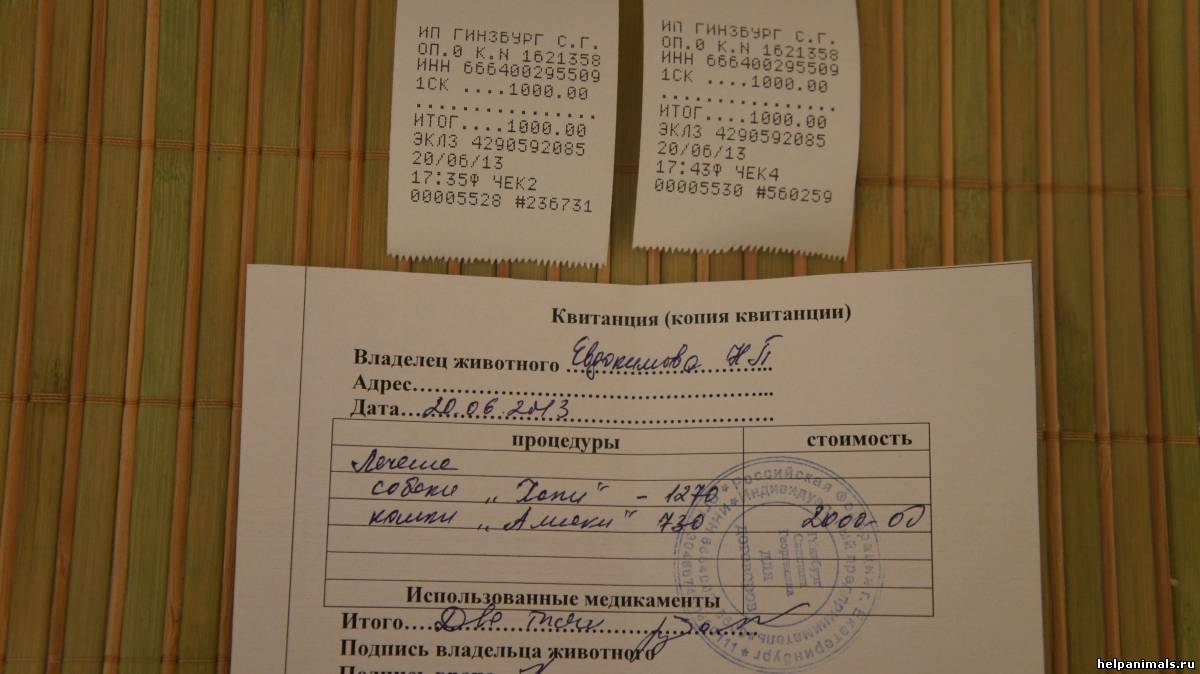 ИП ГИНЗБУРГ С.Г.
ОП.0 К.N 1621358
ИНН 666400295509
1СК ....1000.00
................
ИТОГ....1000.00
ЭКЛЗ 4290592085
20/06/13
17:35Ф ЧЕК2
00005528 #236731
ИП ГИНЗБУРГ С.Г.
ОП.0 К.N 1621358
ИНН 666400295509
1СК ....1000.00
................
ИТОГ....1000.00
ЭКЛЗ 4290592085
20/06/13
17:43Ф ЧЕК4
00005530 #560259
Квитанция (копия квитанции)
Владелец животного Евдокимова Н П
Адрес
Дата 20.06.2013
процедуры стоимость
Лечение
собаки „Хопи" - 1270
кошки „Алиски" 730 2000-00
Использованные медикаменты
Итого Две тысячи
Подпись владельца животного
Подпись врача
Российская Федерация г. Екатеринбург
Индивидуальный предприниматель
Гинзбург
Светлана
Георгиевна
ДЛЯ
ДОГОВОРОВ
helpanimals.ru